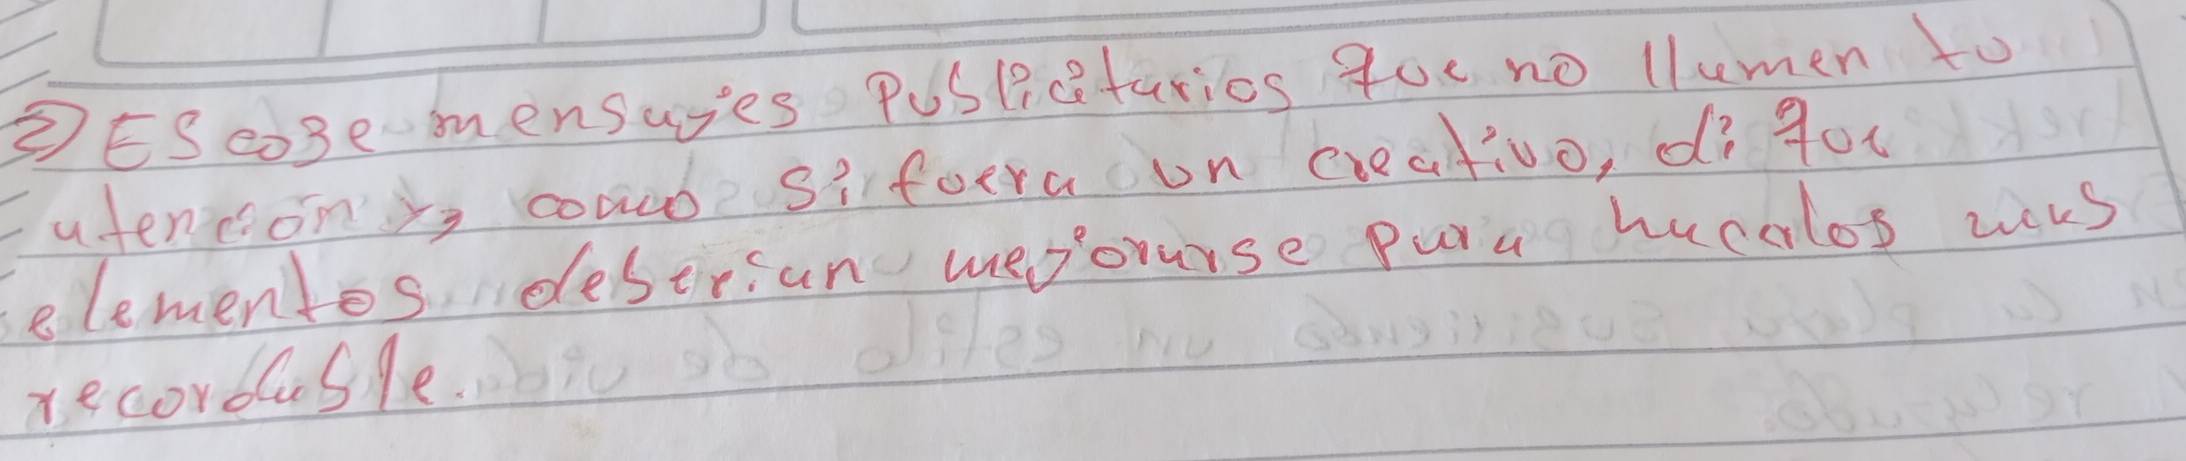 2) Escoge mensajes Publicitarios que no llamen tu
atención y, como si fuera un creativo, di que
elementos deberian mejorarse para hacerlos mas
recordable.